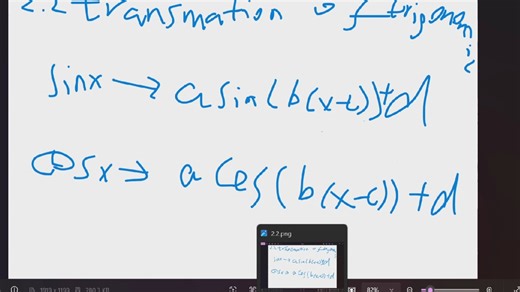 2.2 transmation of trigonomic
sinx → asin(b(x-c))+d
cosx → a cos(b(x-c))+d
2.2.png
82%